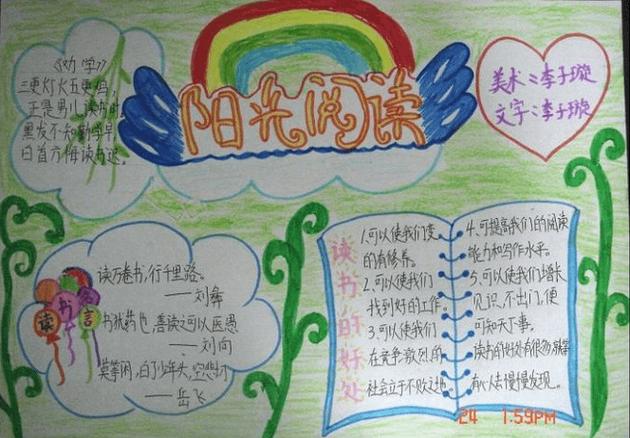 《劝学》
三更灯火五更鸡,
正是男儿读书时。
黑发不知勤学早,
白首方悔读书迟。
阳光阅读
美术:李子璇
文字:李子璇
读书名言
读万卷书,行千里路。
——刘彝
书犹药也,善读之可以医愚
——刘向
莫等闲,白了少年头,空悲切
——岳飞
读书的好处
1.可以使我们变
的有修养。
2.可以使我们
找到好的工作。
3.可以使我们
在竞争激烈的
社会立于不败之地
4.可提高我们的阅读
能力和写作水平。
5.可以使我们增长
见识,不出门,便
可知天下事。
读书的好处有很多,
有人去慢慢发现。
24 1:59PM